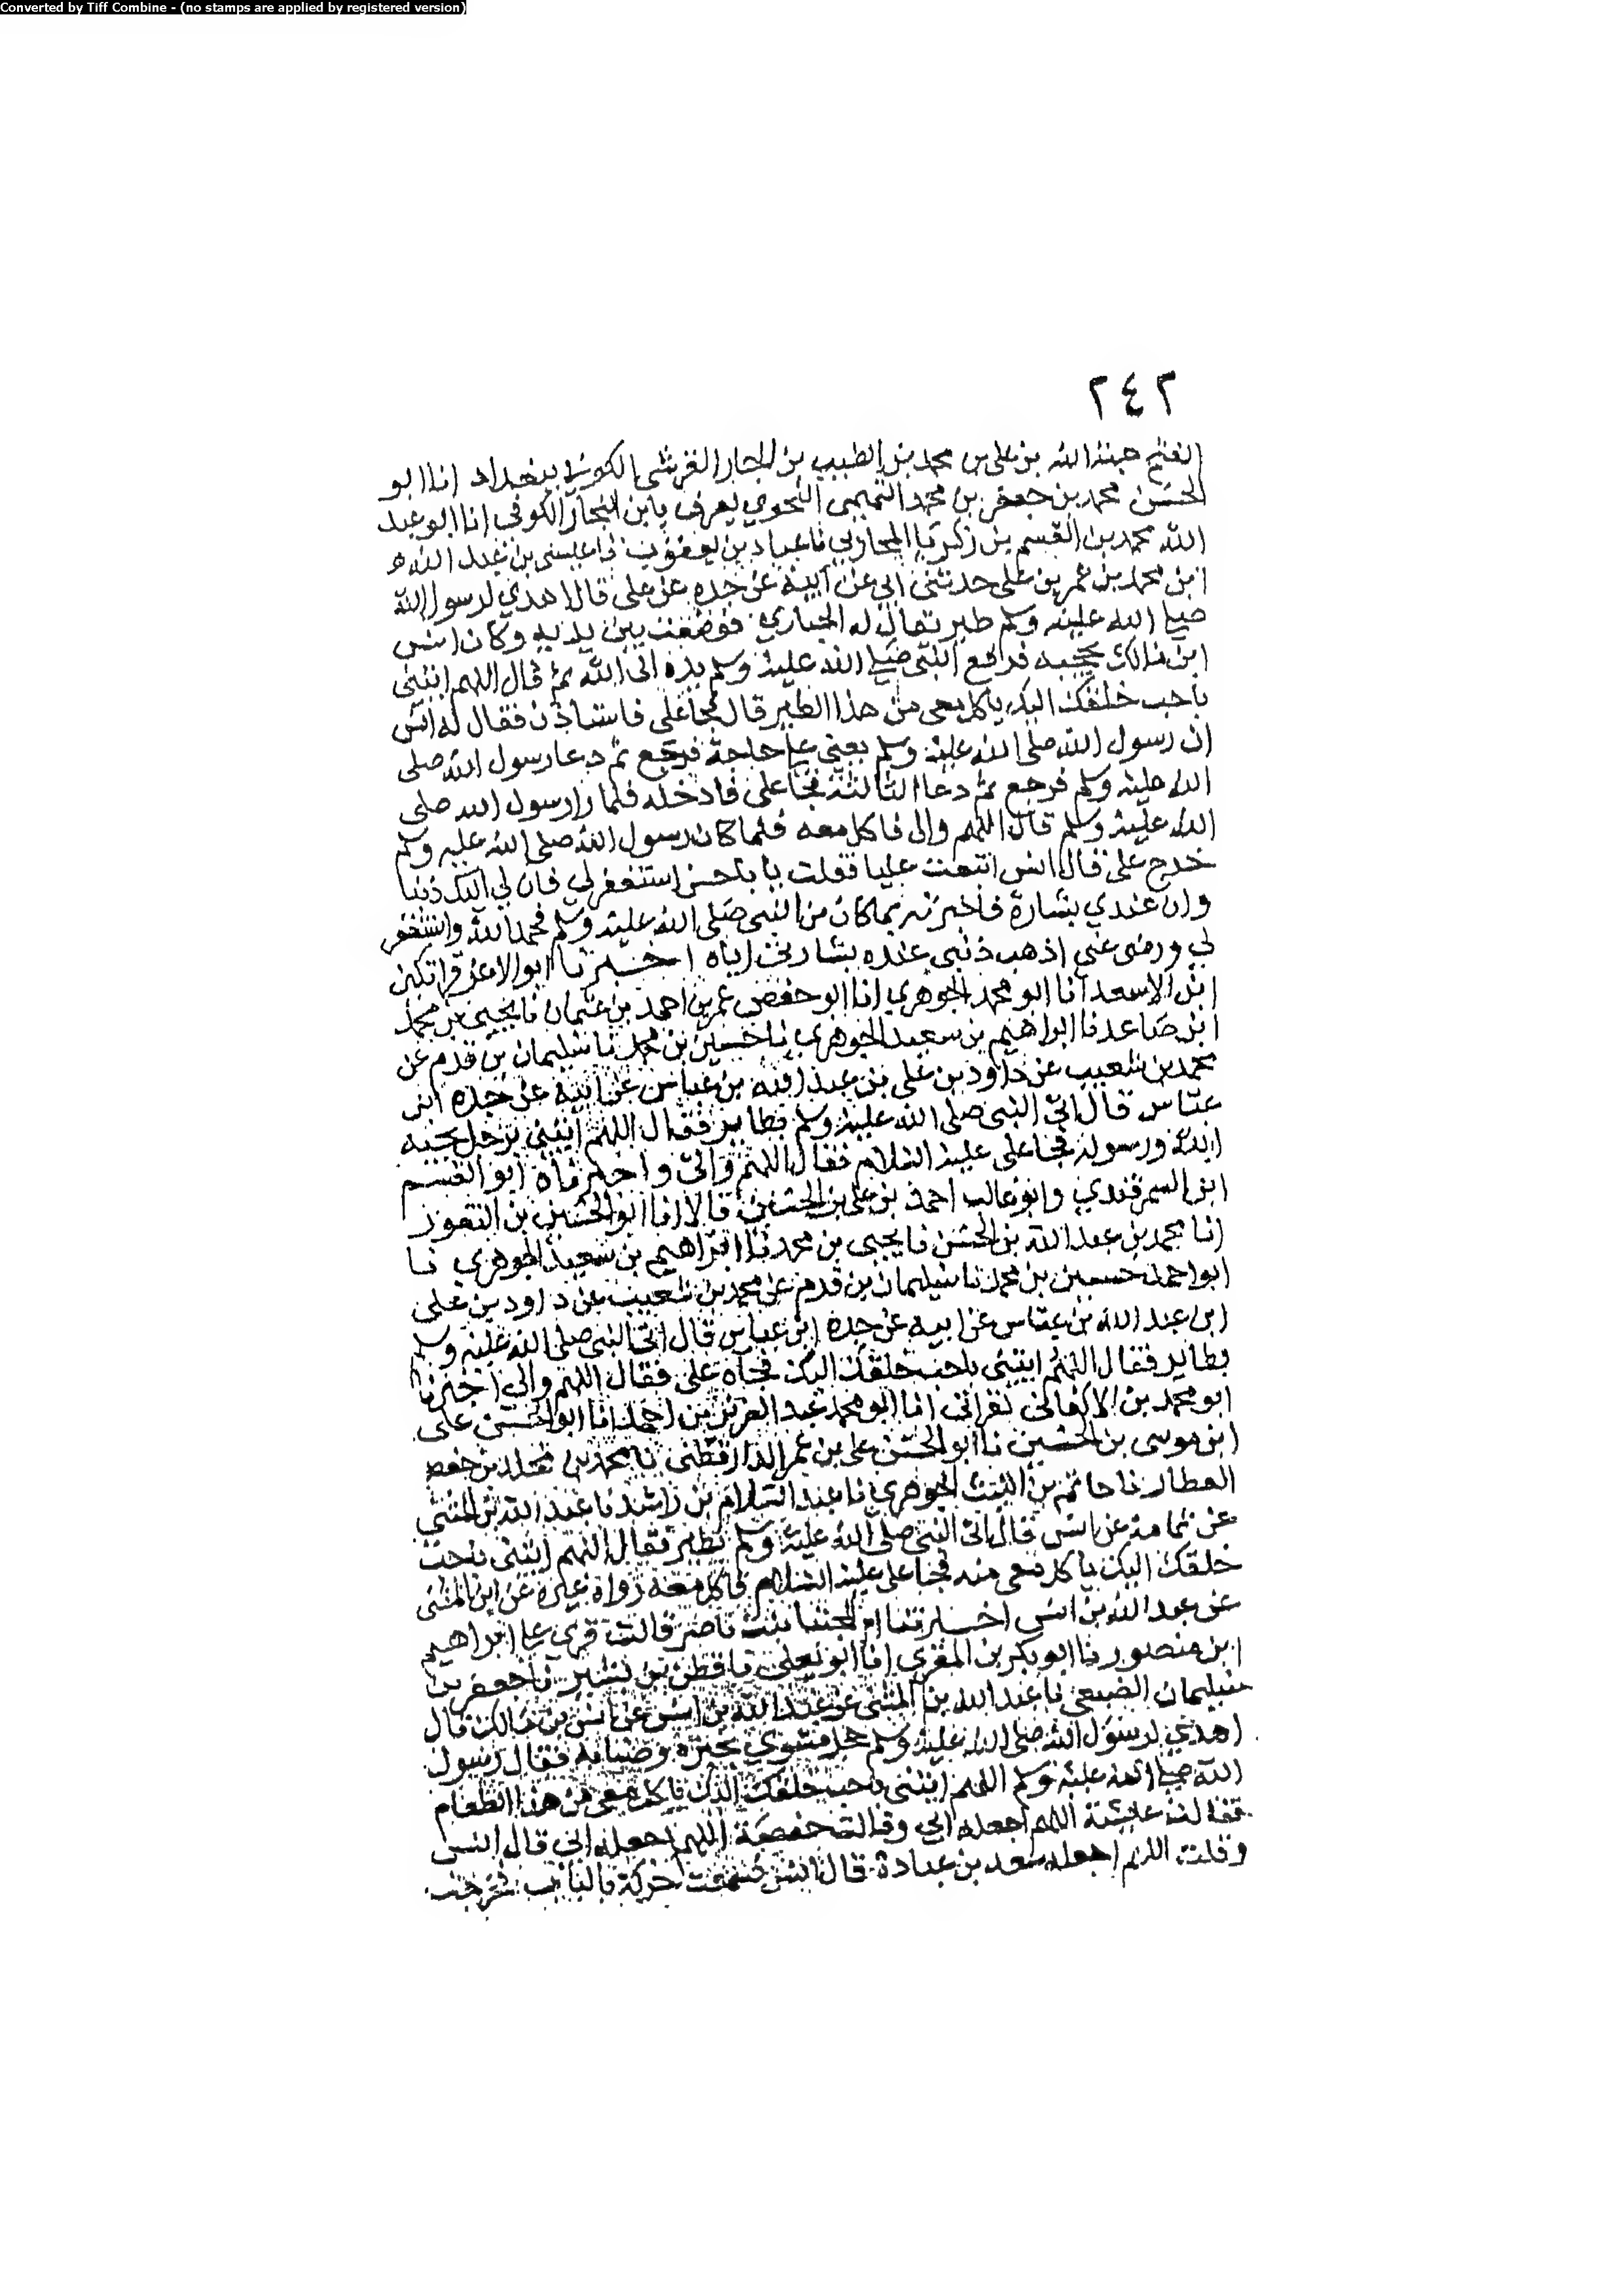 Converted by Tiff Combine - (no stamps are applied by registered version)
٢٤٢
الفتح هبة الله بن علي بن محمد بن الطيب بن الجار القرشي الكوفي ببغداد انا ابو
الحسن محمد بن جعفر بن محمد التميمي النحوي يعرف بابن النجار الكوفي انا ابو عبد
الله محمد بن القسم بن زكريا المحاربي نا عباد بن يعقوب نا عيسى بن عبد الله
ابن محمد بن عمر بن علي حدثني ابي عن ابيه عن جده عن علي قال اهدي لرسول الله
صلى الله عليه وسلم طير يقال له الحباري فوضعت بين يديه وكان انس
ابن مالك يحجبه فرفع النبي صلى الله عليه وسلم يده الى الله ثم قال اللهم ائتني
باحب خلقك اليك ياكل معي من هذا الطير قال فجا علي فاستاذن فقال له انس
ان رسول الله صلى الله عليه وسلم يعني على حاجة فرجع ثم دعا رسول الله صلى
الله عليه وسلم فرجع ثم دعا الثالثة فجا علي فادخله فلما راه رسول الله صلى
الله عليه وسلم قال اللهم والي فاكل معه فلما كان رسول الله صلى الله عليه وسلم
خرج علي قال انس اتبعت عليا فقلت يا باحسن استغفر لي فان لي اليك ذنبا
وان عندي بشارة فاخبرته بما كان من النبي صلى الله عليه وسلم فحمد الله واستغفر
لي ورضي عني اذهب ذنبي عنده بشارتي اياه اخبرنا ابو الاعز قراتكين
ابن الاسعد انا ابو محمد الجوهري انا ابو حفص عمر بن احمد بن عثمان نا يحيى بن محمد
ابن صاعد نا ابراهيم بن سعيد الجوهري نا حسين بن محمد نا سليمان بن قرم عن
محمد بن شعيب عن داود بن علي بن عبد الله بن عباس عن ابيه عن جده ابن
عباس قال اتي النبي صلى الله عليه وسلم بطاير فقال اللهم ائتني برجل يحبه
الله ورسوله فجا علي عليه السلام فقال اللهم والي واخبرناه ابو القسم
ابن السمرقندي وابو غالب احمد بن علي بن الحسين قالا انا ابو الحسين بن النقور
انا محمد بن عبد الله بن الحسن نا يحيى بن محمد نا ابراهيم بن سعيد الجوهري نا
ابو احمد حسين بن محمد نا سليمان بن قرم عن محمد بن شعيب عن داود بن علي
ابن عبد الله بن عباس عن ابيه عن جده ابن عباس قال اتي النبي صلى الله عليه وسلم
بطاير فقال اللهم ايتني باحب خلقك اليك فجاه علي فقال اللهم والي اخبرنا
ابو محمد بن الاكفاني بقراتي انا ابو محمد عبد العزيز بن احمد انا ابو الحسن علي
ابن موسى بن الحسين نا ابو الحسن علي بن عمر الدارقطني نا محمد بن مخلد بن حفص
العطار نا حاتم بن الليث الجوهري نا عبد السلام بن راشد نا عبد الله بن المثنى
عن ثمامة عن انس قال اتي النبي صلى الله عليه وسلم بطير فقال اللهم ايتني باحب
خلقك اليك ياكل معي منه فجا علي عليه السلام فاكل معه رواه غيره عن ابن المثنى
عن عبد الله بن انس اخبرتنا ام المجتبا بنت ناصر قالت قري على ابراهيم
ابن منصور نا ابو بكر بن المقري انا ابو يعلى نا قطن بن نسير نا جعفر بن
سليمان الضبعي نا عبد الله بن المثنى عن عبد الله بن انس عن انس بن مالك قال
اهدي لرسول الله صلى الله عليه وسلم حجل مشوي بخبزه وصنابه فقال رسول
الله صلى الله عليه وسلم اللهم ايتني باحب خلقك اليك ياكل معي من هذا الطعام
فقالت عايشة اللهم اجعله ابي وقالت حفصة اللهم اجعله ابي قال انس
وقلت اللهم اجعله سعد بن عبادة قال انس فسمعت حركة بالباب فخرجت